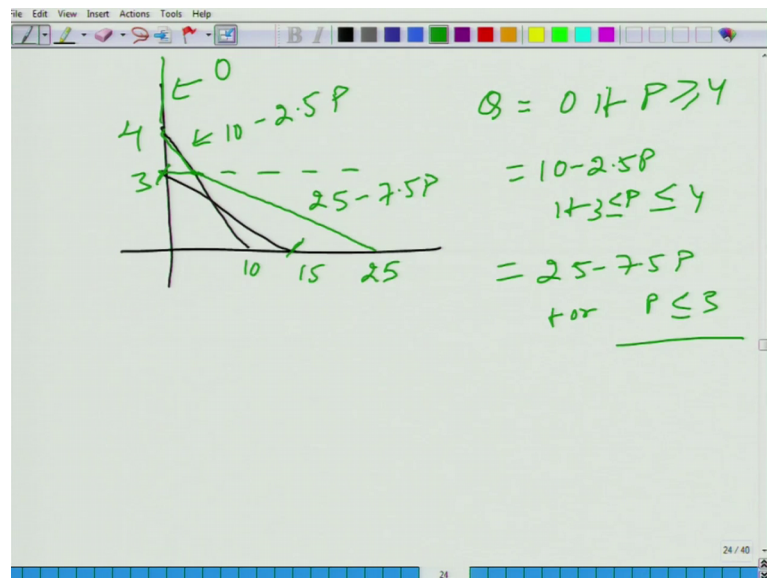 File Edit View Insert Actions Tools Help
B I
0
4
10-2.5P
3
25-7.5P
10 15 25
Q = 0 if P ≥ 4
= 10-2.5P
if 3 ≤ P ≤ 4
= 25-75P
for P ≤ 3
24 / 40
24